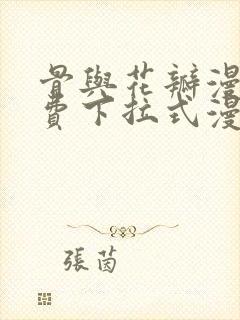 骨與花瓣漫
費下拉式漫
張茵